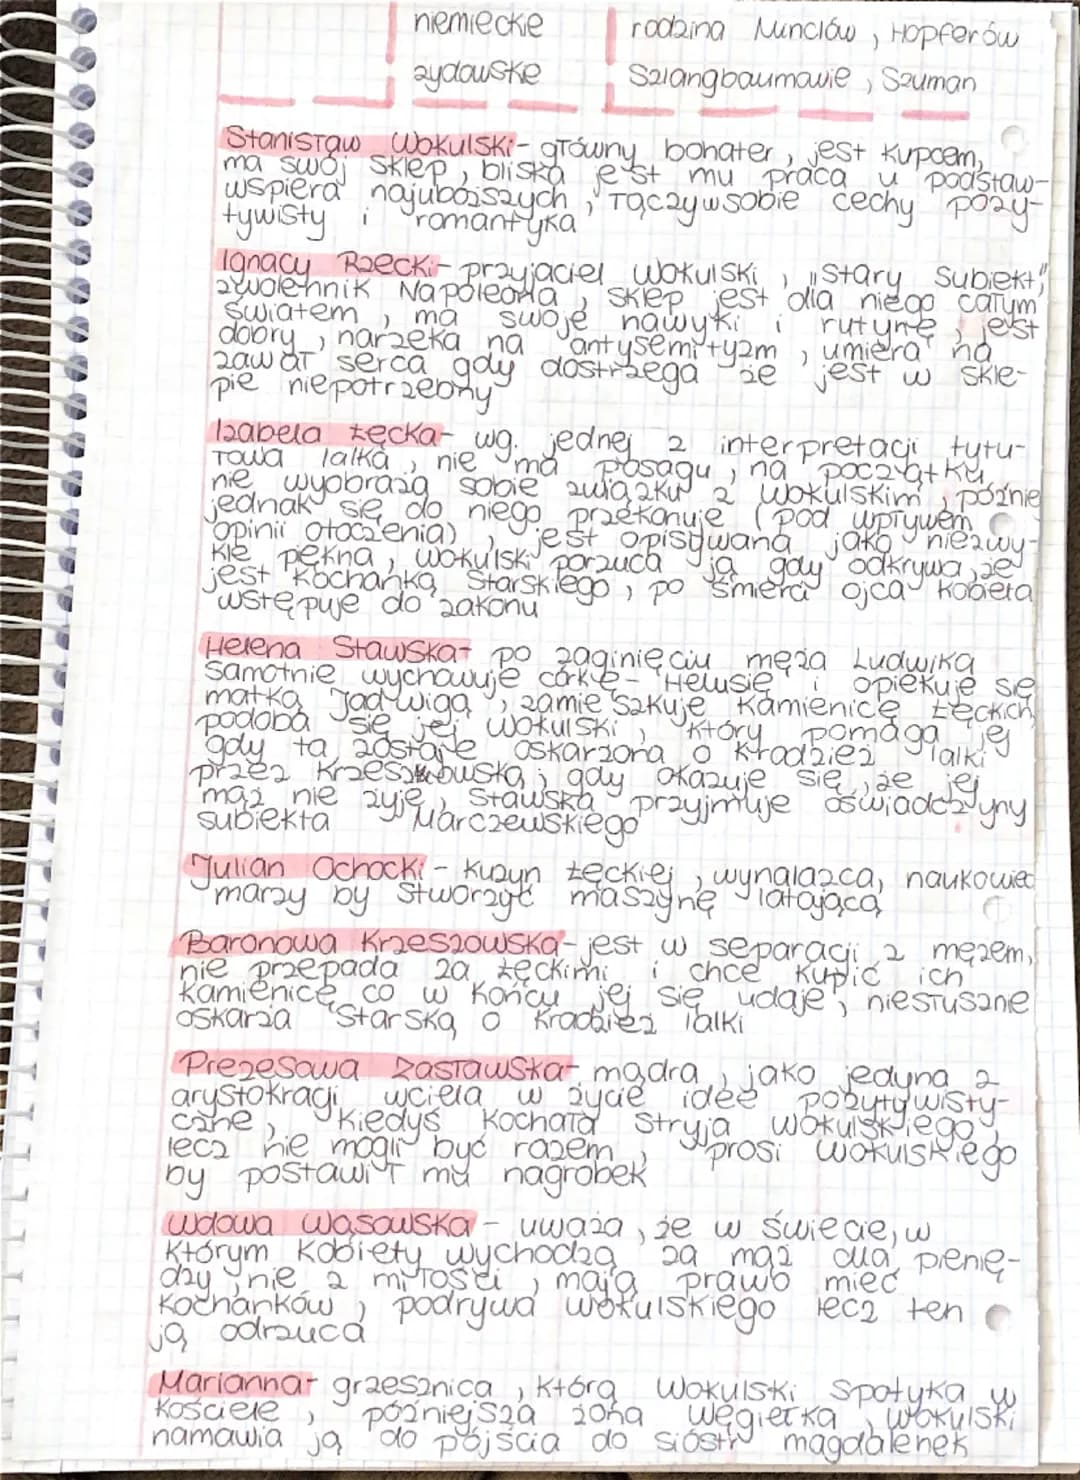 niemieckie rodzina Minclów, Hopferów
żydowskie Szlangbaumowie, Szuman
Stanisław Wokulski- główny bohater, jest kupcem,
ma swój sklep, bliska jest mu praca u podstaw-
wspiera najuboższych, łączy w sobie cechy pozy-
tywisty i romantyka
Ignacy Rzecki- przyjaciel Wokulski, "Stary Subiekt",
zwolennik Napoleona, sklep jest dla niego całym
światem, ma swoje nawyki i rutynę, jest
dobry, narzeka na antysemityzm, umiera na
zawał serca gdy dostrzega że jest w skle-
pie niepotrzebny
Izabela Łęcka- wg. jednej z interpretacji tytu-
łowa lalka, nie ma posagu, na początku
nie wyobraża sobie związku z Wokulskim, późnie
jednak się do niego przekonuje (pod wpływem
opinii otoczenia), jest opisywana jako niezwy-
kle piękna, Wokulski porzuca ją gdy odkrywa, że
jest kochanką Starskiego, po śmierci ojca kobieta
wstępuje do zakonu
Helena Stawska- po zaginięciu męża Ludwika
samotnie wychowuje córkę- Helusię i opiekuje się
matką Jadwigą, zamieszkuje kamienicę Łęckich
podoba się jej Wokulski, który pomaga jej
gdy ta zostaje oskarżona o kradzież lalki
przez Krzeszowską, gdy okazuje się, że jej
mąż nie żyje, Stawska przyjmuje oświadczyny
subiekta Marczewskiego
Julian Ochocki- kuzyn Łęckiej, wynalazca, naukowiec
marzy by stworzyć maszynę latającą
Baronowa Krzeszowska- jest w separacji z mężem,
nie przepada za Łęckimi i chce kupić ich
kamienicę co w końcu jej się udaje, niesłusznie
oskarża Starską o kradzież lalki
Prezesowa Zasławska- mądra, jako jedyna z
arystokracji wciela w życie idee pozytywisty-
czne, kiedyś kochała stryja Wokulskiego,
lecz nie mogli być razem, prosi Wokulskiego
by postawił mu nagrobek
Wdowa Wąsowska- uważa, że w świecie, w
którym kobiety wychodzą za mąż dla pienię-
dzy, nie z miłości, mają prawo mieć
kochanków, podrywa Wokulskiego lecz ten
ją odrzuca
Marianna- grzesznica, którą Wokulski spotyka w
kościele, późniejsza żona Węgiełka, Wokulski
namawia ją do pójścia do sióstr magdalenek